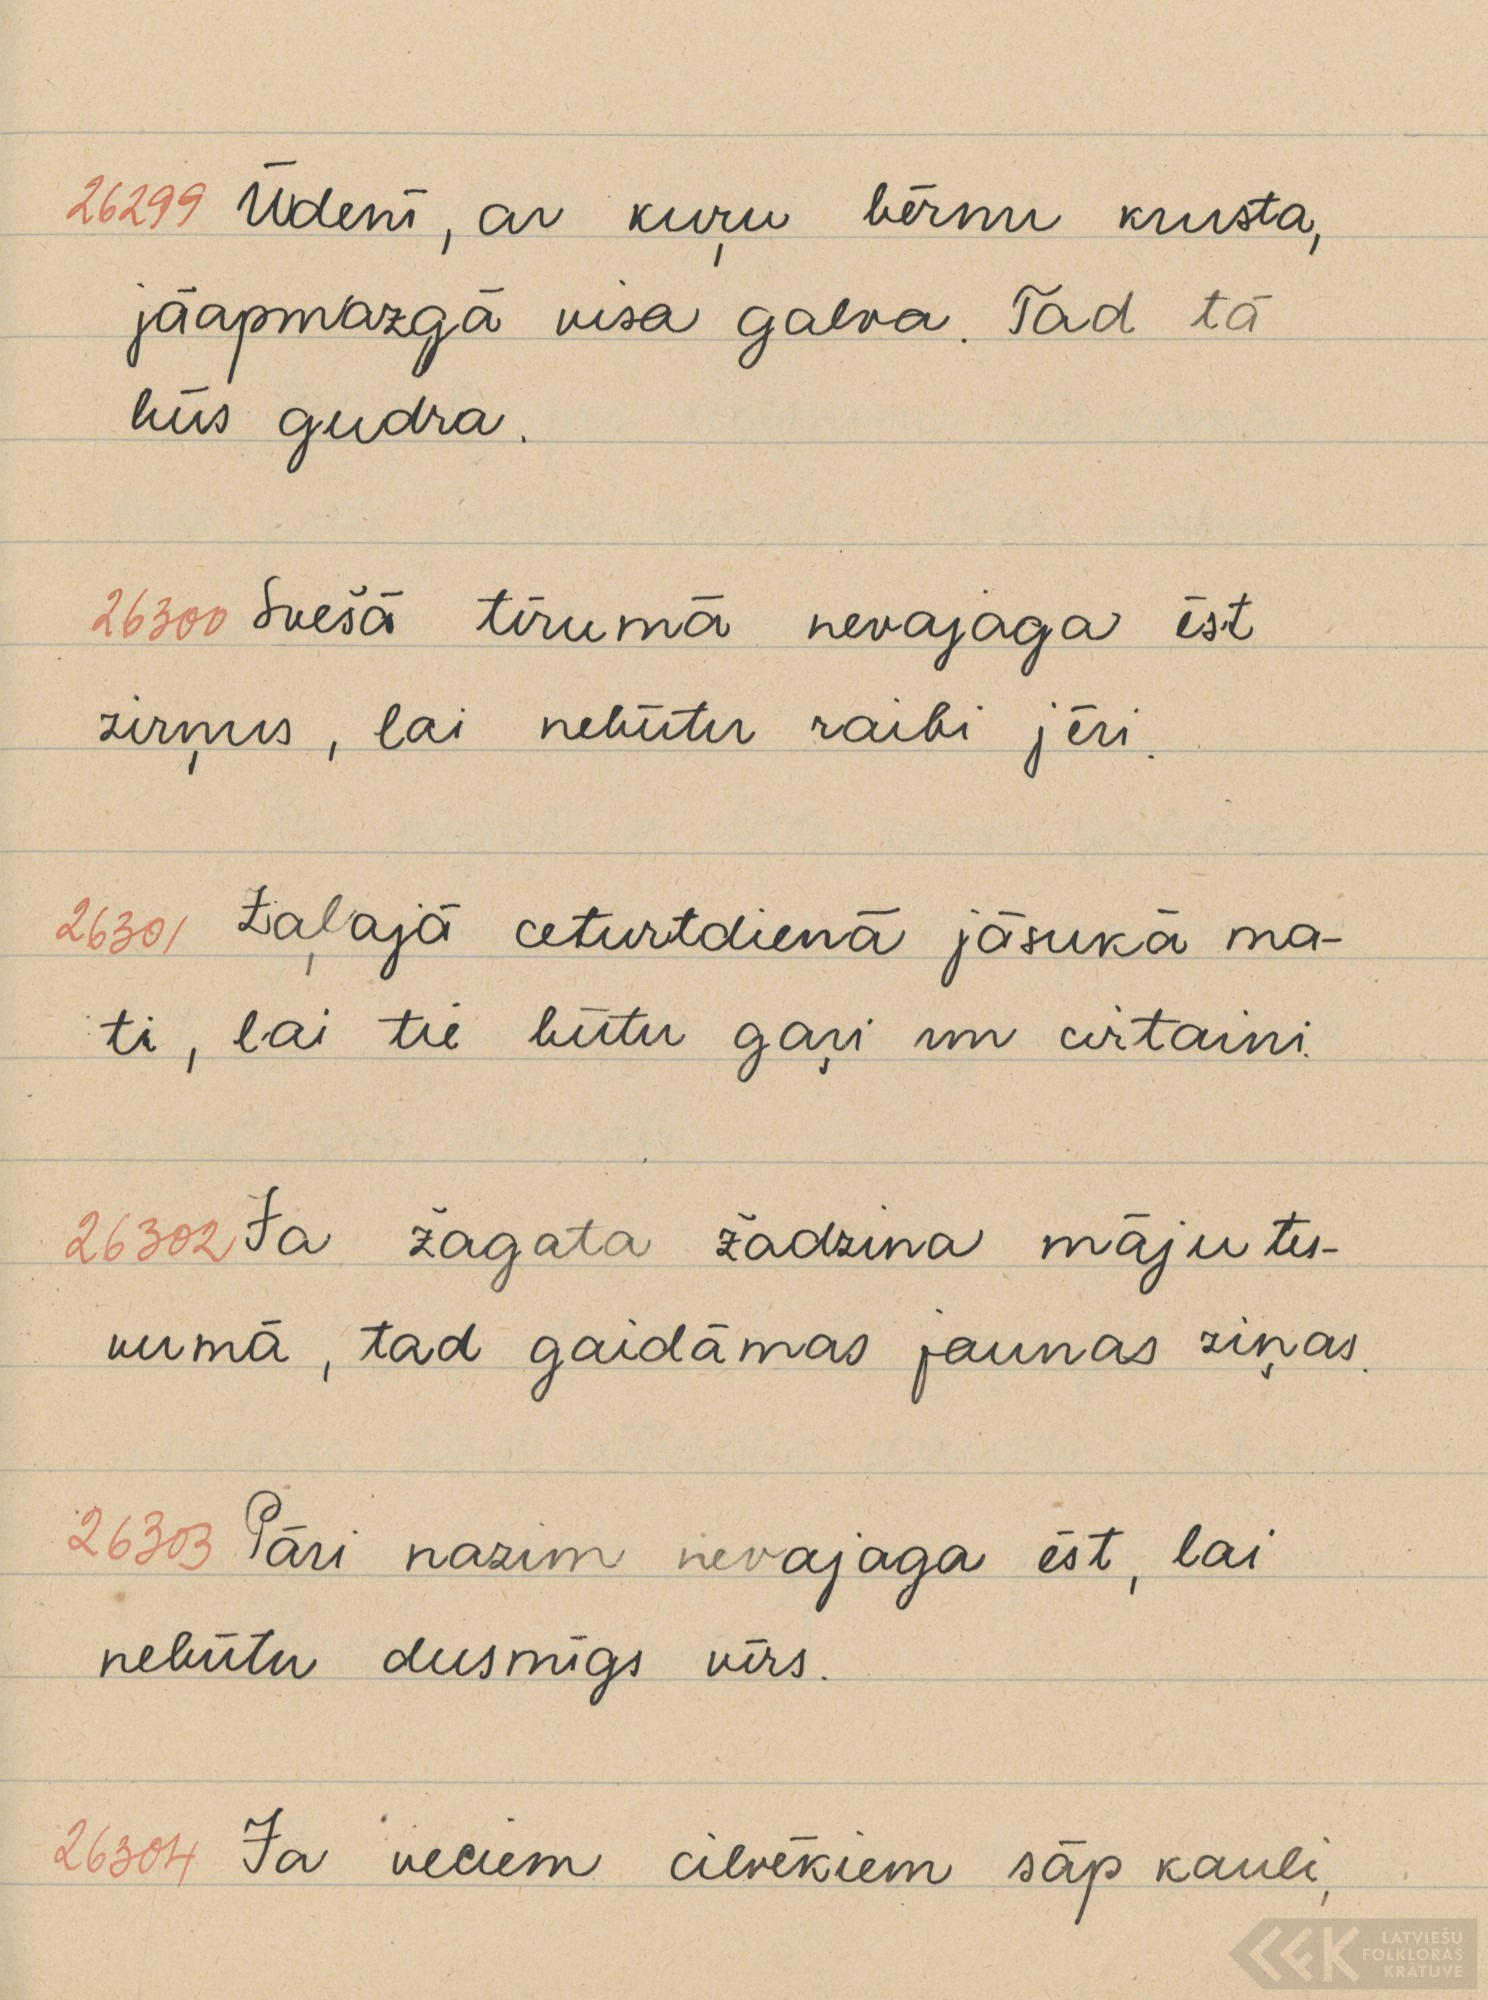 26299 Ūdenī, ar kuŗu bērnu krusta,
jāapmazgā visa galva. Tad tā
būs gudra.
26300 Svešā tīrumā nevajaga ēst
zirņus, lai nebūtu raibi jēri.
26301 Zaļajā ceturtdienā jāsukā ma-
ti, lai tie būtu gaŗi un cirtaini.
26302 Ja žagata žadzina māju tu-
vumā, tad gaidāmas jaunas ziņas.
26303 Pāri nazim nevajaga ēst, lai
nebūtu dusmīgs vīrs.
26304 Ja veciem cilvēkiem sāp kauli,
LATVIEŠU
FOLKLORAS
KRĀTUVE